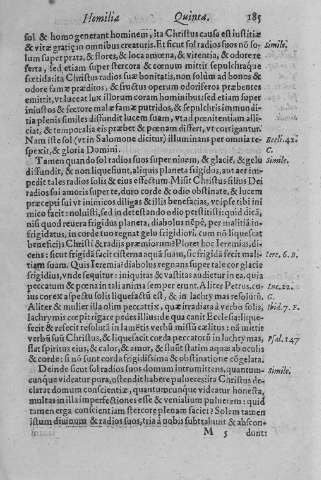 Homilia Quinta. 185
sol & homo generant hominem, ita Christus causa est iustitiæ
& vitæ gratiæ in omnibus creaturis. Et sicut sol radios suos nõ so- Simile.
lum super prata, & flores, & loca amœna, & virentia, & odore re
ferta, sed etiam super stercora & cœnum mittit sepulchraque
fœtida ita Christus radios suæ bonitatis, non solùm ad bonos &
odore famæ præditos, & fructus operum odoriferos præbentes
emittit, vt luceat lux illorum coram hominibus sed etiam super
iniustos & fœtore malæ famæ putridos, & sepulchris immundi-
tia plenis similes diffundit lucem suam, vt ad pœnitentiam alli-
ciat, & temporalia eis præbet & pœnam differt, vt corrigantur.
Nam iste sol (vt in Salomone dicitur) illuminans per omnia re- Eccli. 42.
spexit, & gloria Domini. C.
Tamen quando sol radios suos super niuem, & glaciē, & gelu Simile.
diffundit, & non liquefiunt, aliquis planeta frigidus, aut aer im-
pedit tales radios solis & eius effectum Misit Christus filius Dei
radios sui amoris super te, duro corde & odio obstinate, & lucem
præcepti sui vt inimicos diligas & illis benefacias, vt ipse tibi ini
mico facit: noluisti, sed in detestando odio perstitisti: quid dicā,
nisi quod reuera frigidus planeta, diabolus nēpè, per malitiā in-
frigidatus, in corde tuo regnat gelu frigidiori, cum nō liquescat
beneficiis Christi & radiis præmiorum? Plorat hoc Ieremias, di-
cens: sicut frigidā facit cisterna aquā suam, sic frigidā fecit mali- Iere. 6. B.
tiam suam. Quis Ieremias? diabolus regnans super tale cor glacie
frigidius, vnde sequitur: iniquitas & vastitas audietur in ea, quia
peccatum & pœna in tali anima semper erunt. Aliter Petrus, cu- Luc. 22.
ius cor ex aspectu solis liquefactū est, & in lachrymas resolutū. G.
Aliter & mulier illa olim peccatrix, quæ irradiata à verbo solis, Ibid. 7. F.
lachrymis cœpit rigare pedes illius: de quo canit Ecclesia: lique-
fecit & resecit resolutā in lamētis verbū missū cælitus: nā mittit
verbū suū Christus, & liquefacit corda peccatorū in lachrymas, Psal. 147
flat spiritus eius, & calor, & amor, & fluūt statim aquæ ab oculis
& corde: si nō sunt corda frigidissima & obstinatione cōgelata.
Deinde sicut sol radios suos domum intromittens, quantum- Simile.
cunque videatur pura, ostendit habere pulueres: ita Christus de-
clarat domum conscientiæ, quantumcunque videatur honesta,
multas in illa imperfectiones esse & venialium puluerem: quid
tamen erga conscientiam stercore plenam faciet? Solem tamen
istum diuinum & radios suos, tria à nobis subtrahunt & abscon-
M 5 dunt: